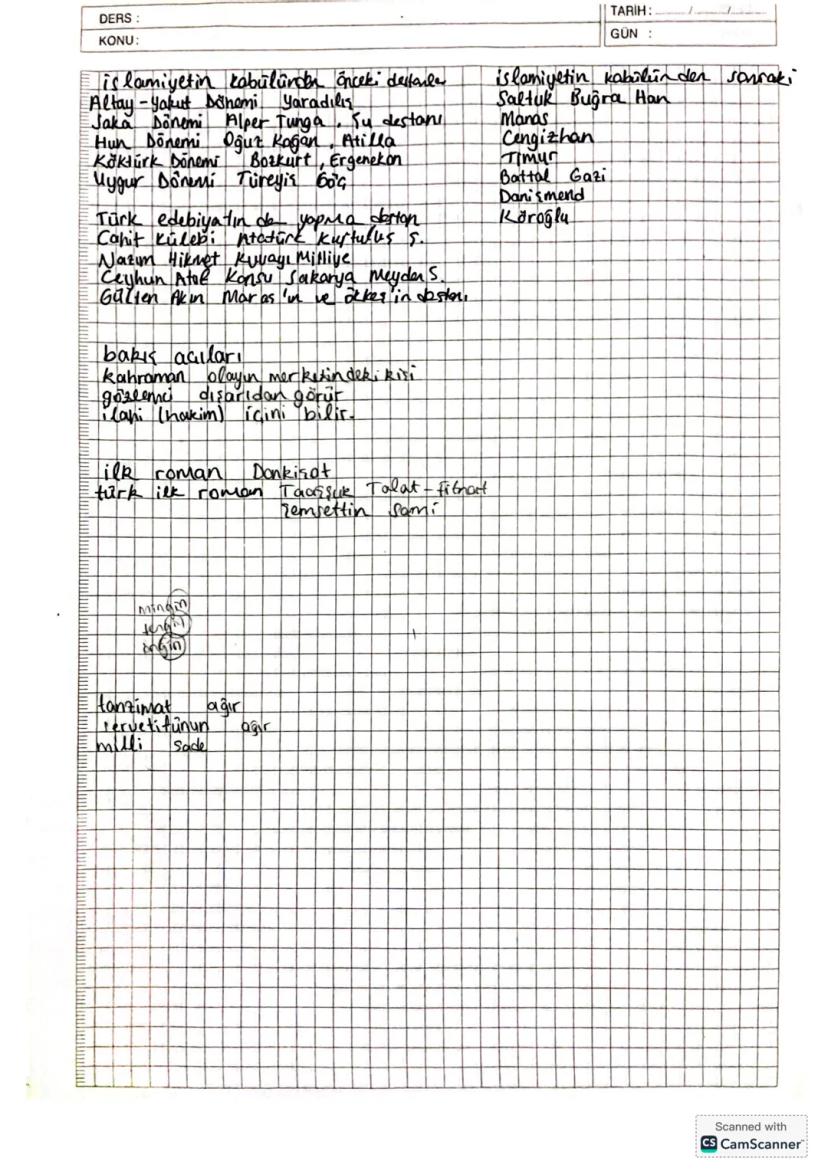 DERS :
KONU:
TARİH: / /
GÜN :
islamiyetin kabülünden önceki destanlar
Altay-Yakut Dönemi Yaradılış
Saka Dönemi Alper Tunga, Şu destanı
Hun Dönemi Oğuz Kağan, Atilla
Köktürk Dönemi Bozkurt, Ergenekon
Uygur Dönemi Türeyiş Göç
Türk edebiyatın da yapma destan
Cahit Külebi Atatürk Kurtuluş S.
Nazım Hikmet Kuvayı Milliye
Ceyhun Atuf Kansu Sakarya Meydan S.
Gülten Akın Maraş'ın ve ökkeş'in destanı
bakış açıları
kahraman olayın merkezindeki kişi
gözlemci dışarıdan görür
ilahi (hakim) içini bilir.
ilk roman Donkişot
türk ilk roman Taaşşuk Talat-fitnat
Şemsettin Sami
mingin
sergin
öngin
tanzimat ağır
servetifünun ağır
milli sade
islamiyetin kabülünden sonraki
Saltuk Buğra Han
Manas
Cengizhan
Timur
Battal Gazi
Danişmend
Köroğlu
Scanned with
CS CamScanner